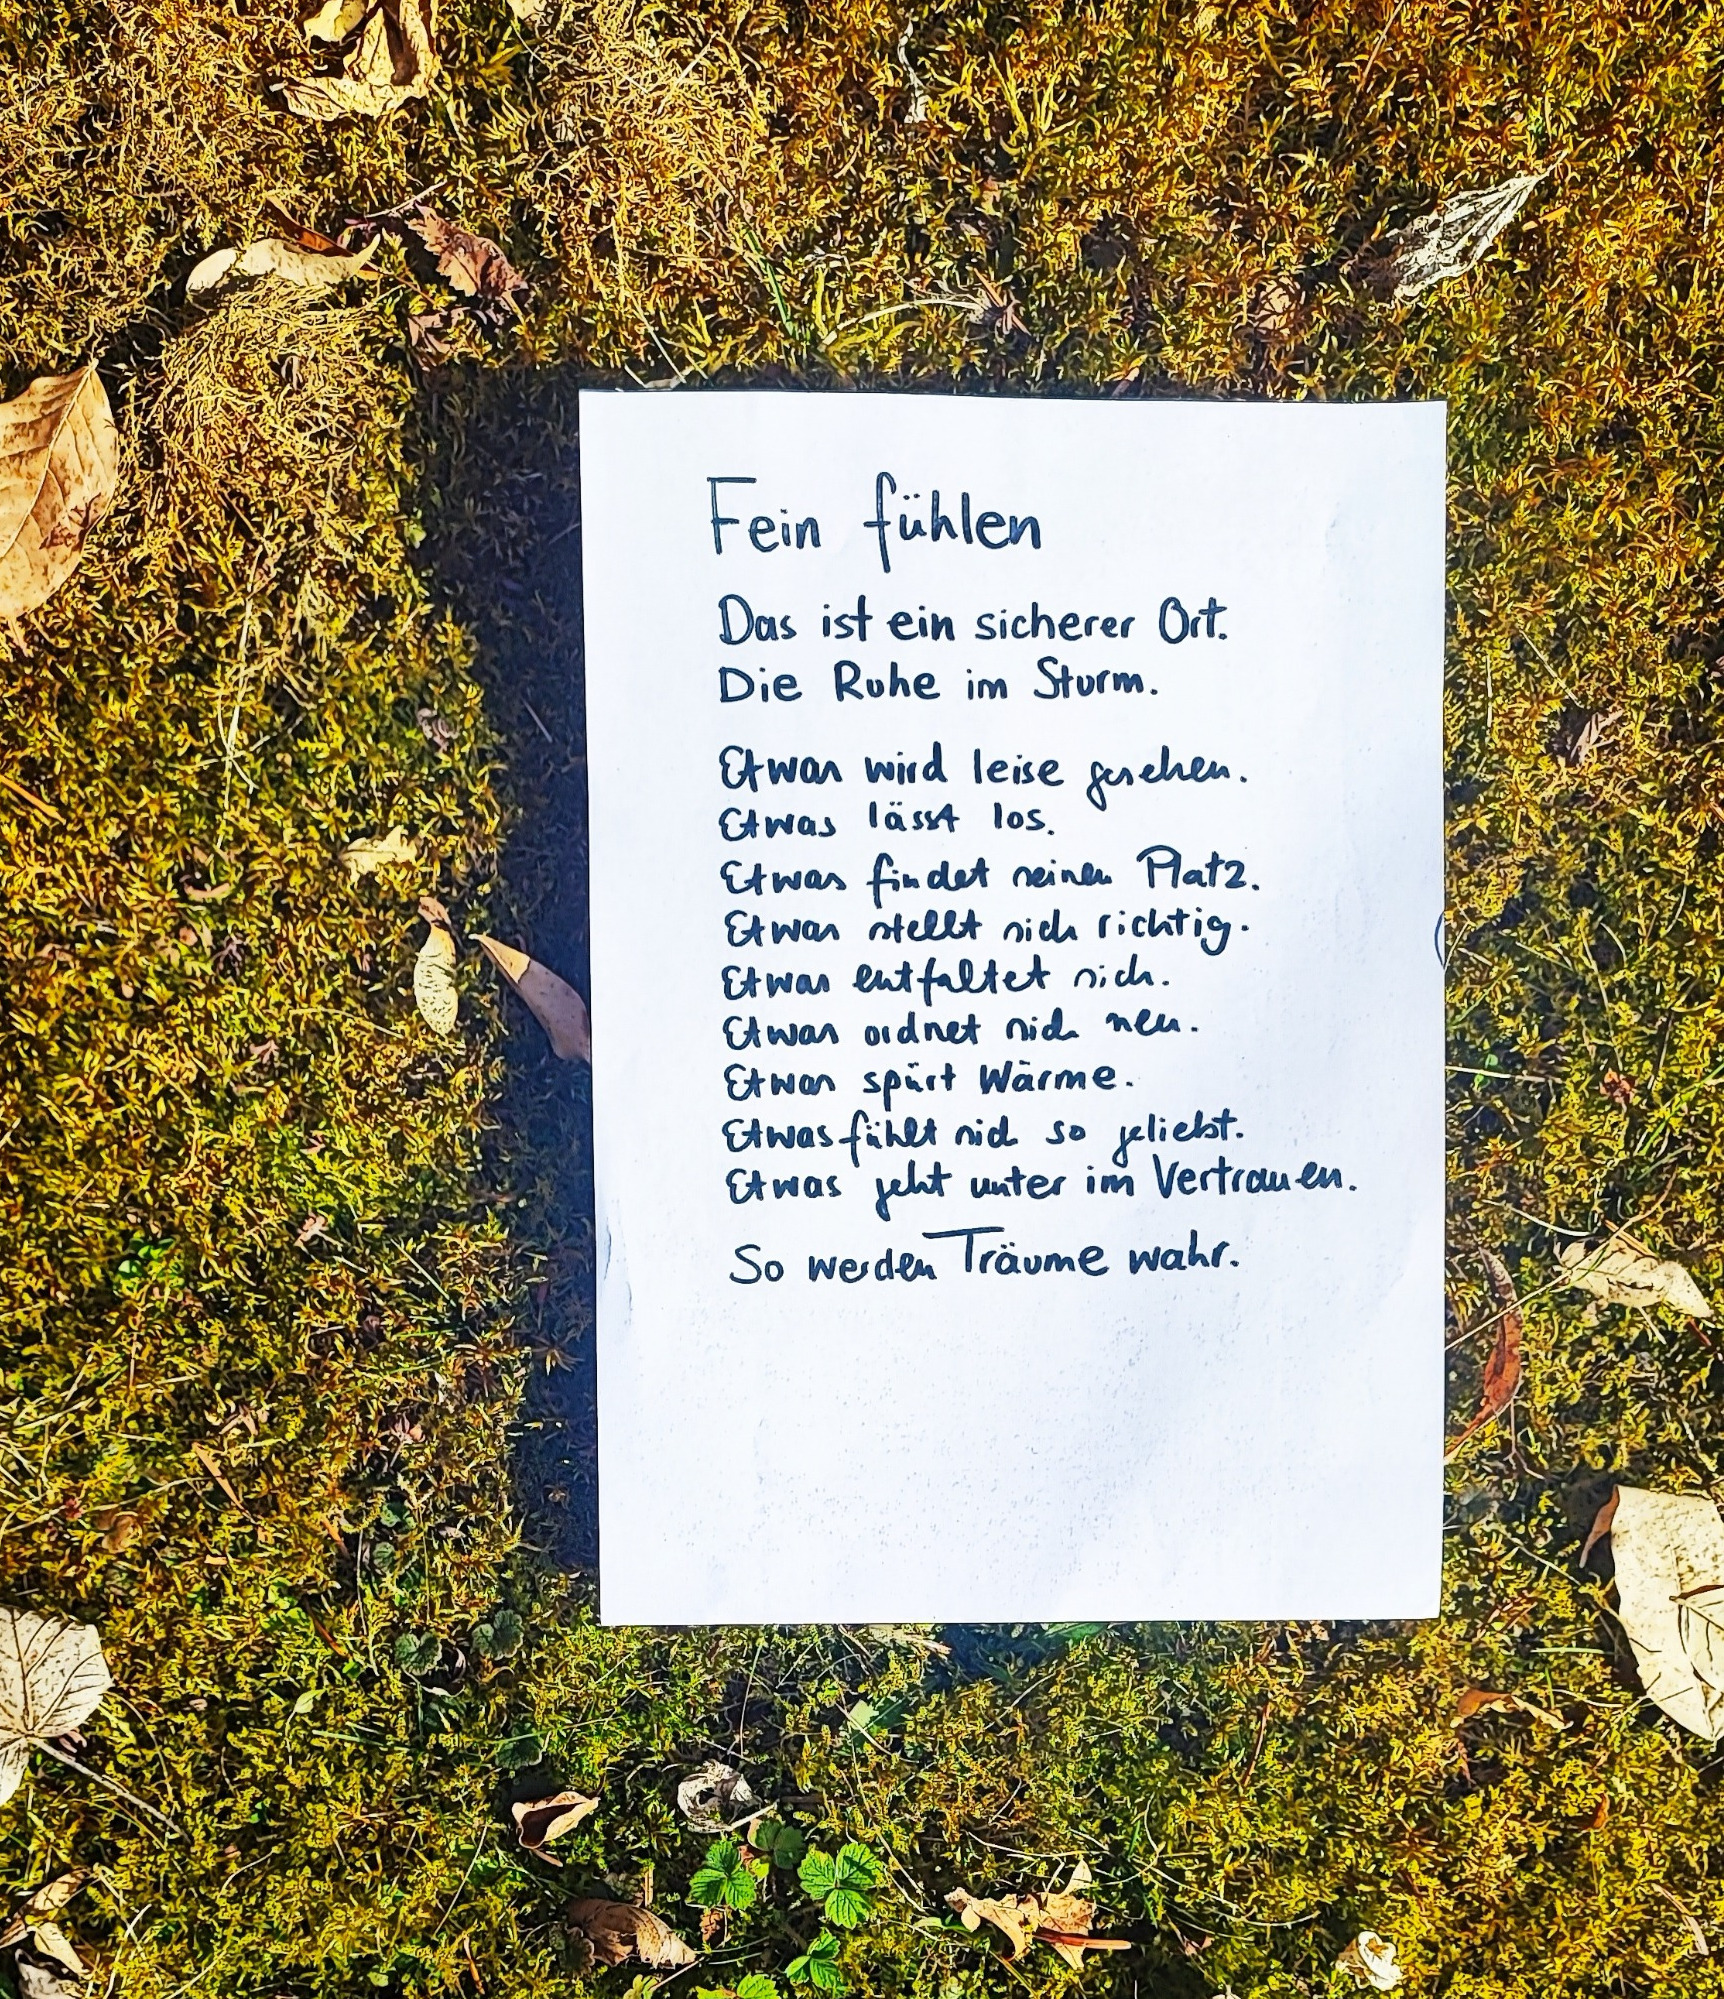 Fein fühlen
Das ist ein sicherer Ort.
Die Ruhe im Sturm.
Etwas wird leise gesehen.
Etwas lässt los.
Etwas findet seinen Platz.
Etwas stellt sich richtig.
Etwas entfaltet sich.
Etwas ordnet sich neu.
Etwas spürt Wärme.
Etwas fühlt sich so geliebt.
Etwas geht unter im Vertrauen.
So werden Träume wahr.